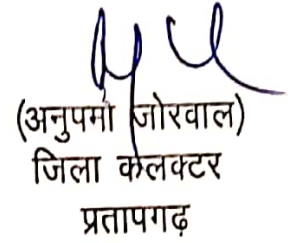 (अनुपमा जोरवाल)
जिला कलक्टर
प्रतापगढ़